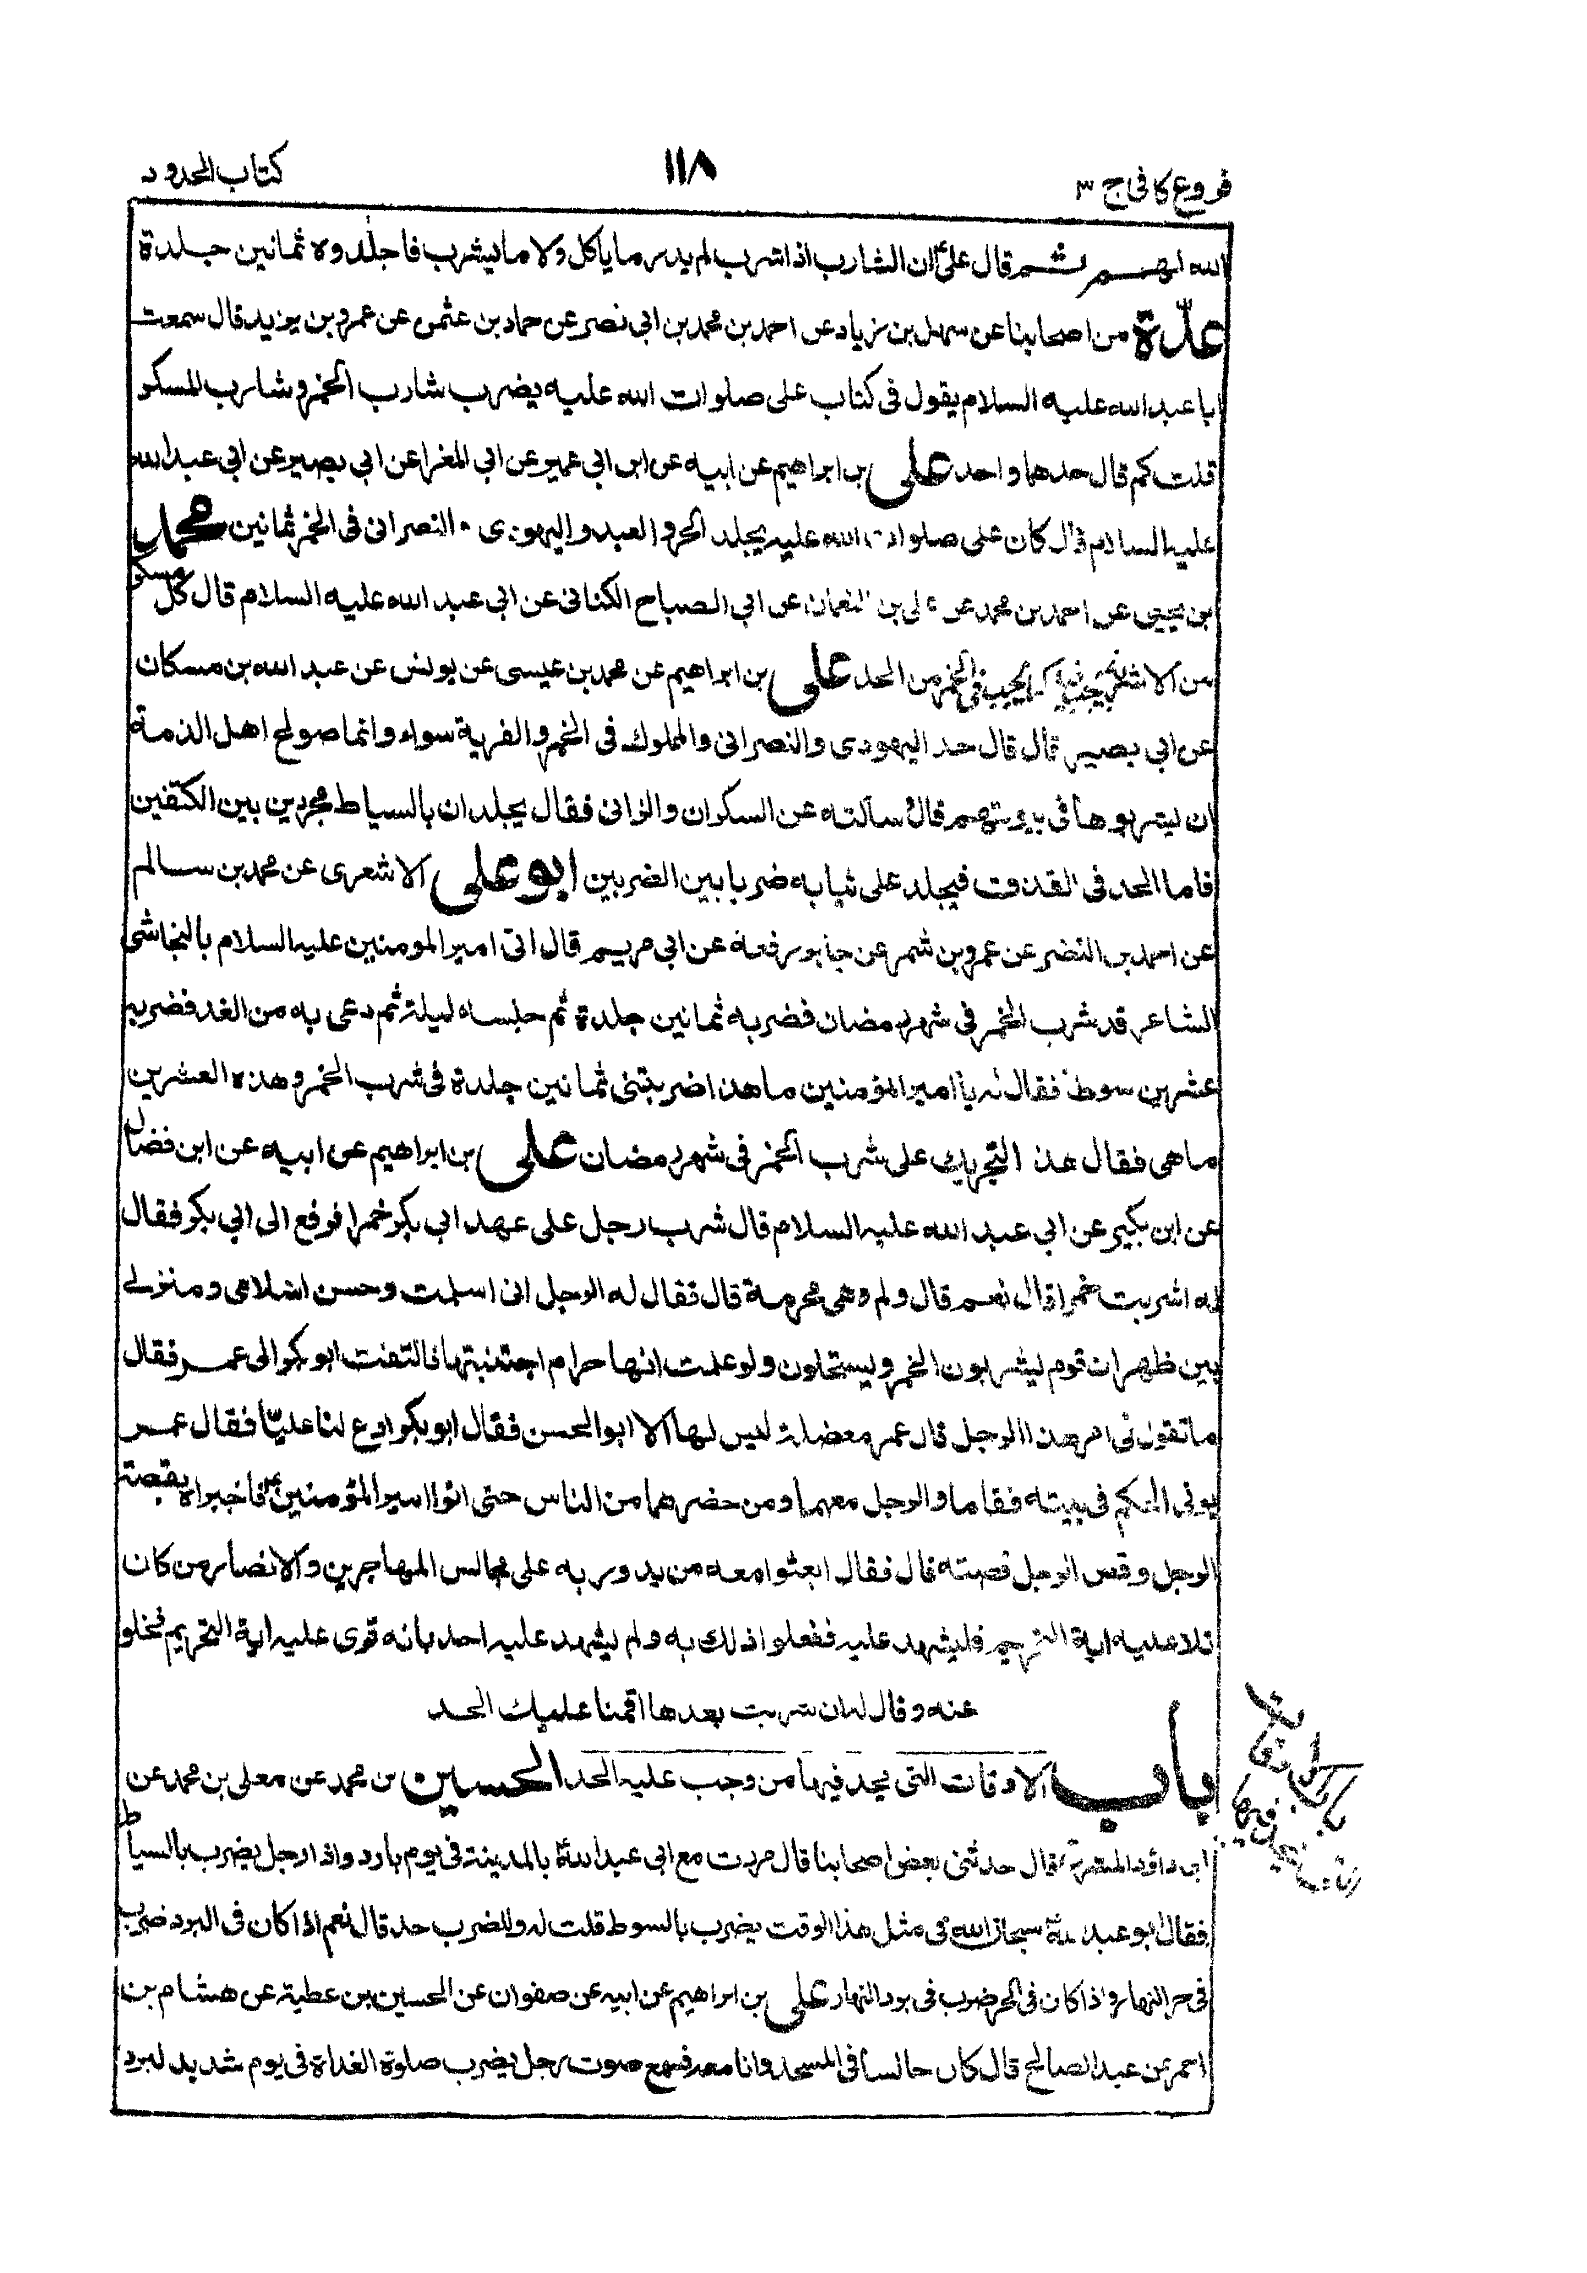 فروع كافی ج ۳
١١٨
كتاب الحدود
الله لهم ثم قال علىّ ان الشارب اذا شرب لم يدر ما ياكل ولا ما يشرب فاجلدوه ثمانين جلدة
عدّة من اصحابنا عن سهل بن زياد عن احمد بن محمد بن ابى نصر عن حماد بن عثمن عن عمرو بن يزيد قال سمعت
ابا عبد الله عليه السلام يقول فى كتاب على صلوات الله عليه يضرب شارب الخمر وشارب المسكر
قلت كم قال حدهما واحد على بن ابراهيم عن ابيه عن ابن ابى عمير عن ابى المغرا عن ابى بصير عن ابى عبد الله
عليه السلام قال كان على صلوات الله عليه يجلد الحر والعبد واليهودى والنصرانى فى الخمر ثمانين محمد
بن يحيى عن احمد بن محمد عن على بن النعمان عن ابى الصباح الكنانى عن ابى عبد الله عليه السلام قال كل مسكر
من الاشربة يجب فيه كما يجب فى الخمر من الحد على بن ابراهيم عن محمد بن عيسى عن يونس عن عبد الله بن مسكان
عن ابى بصير قال قال حد اليهودى والنصرانى والمملوك فى الخمر والفرية سواء وانما صولح اهل الذمة
ان يشربوها فى بيوتهم قال سالته عن السكران والزانى فقال يجلدان بالسياط مجردين بين الكتفين
فاما الحد فى القذف فيجلد على ثيابه ضربا بين الضربين ابو على الاشعرى عن محمد بن سالم
عن احمد بن النضر عن عمرو بن شمر عن جابر رفعه عن ابى مريم قال اتى امير المومنين عليه السلام بالنجاشى
الشاعر قد شرب الخمر فى شهر رمضان فضربه ثمانين جلدة ثم حبسه ليلة ثم دعى به من الغد فضربه
عشرين سوطا فقال له يا امير المؤمنين ما هذا ضربتنى ثمانين جلدة فى شرب الخمر وهذه العشرين
ما هى فقال هذا لتجريك على شرب الخمر فى شهر رمضان على بن ابراهيم عن ابيه عن ابن فضال
عن ابن بكير عن ابى عبد الله عليه السلام قال شرب رجل على عهد ابى بكر خمرا فرفع الى ابى بكر فقال
له اشربت خمرا قال نعم قال ولم وهى محرمة قال فقال له الرجل انى اسلمت وحسن اسلامى ومنزلى
بين ظهران قوم يشربون الخمر ويستحلون ولو علمت انها حرام اجتنبتها فالتفت ابو بكر الى عمر فقال
ما تقول فى امر هذا الرجل قال عمر معضلة ليس لها الا ابو الحسن فقال ابو بكر ادع لنا عليّا فقال عمر
يؤتى الحكم فى بيته فقاما والرجل معهما ومن حضرهما من الناس حتى اتوا امير المؤمنين ع فاخبراه بقصة
الرجل وقص الرجل قصته قال فقال ابعثوا معه من يدور به على مجالس المهاجرين والانصار من كان
تلا عليه اية التحريم فليشهد عليه ففعلوا ذلك به ولم يشهد عليه احد بانه قرى عليه اية التحريم فخلو
عنه وقال له ان شربت بعدها اقمنا عليك الحد
باب الاوقات التى يحد فيها من وجب عليه الحد الحسين بن محمد عن معلى بن محمد عن
ابى داود المسترق قال حدثنى بعض اصحابنا قال مررت مع ابى عبد الله ع بالمدينة فى يوم بارد واذا رجل يضرب بالسياط
فقال ابو عبد الله ع سبحان الله فى مثل هذا الوقت يضرب بالسوط قلت له وللضرب حد قال نعم اذا كان فى البرد ضرب
فى حر النهار واذا كان فى الحر ضرب فى برد النهار على بن ابراهيم عن ابيه عن صفوان عن الحسين بن عطية عن هشام بن
احمر عن عبد الصالح قال كان جالسا فى المسجد وانا معه فسمع صوت رجل يضرب صلوة الغداة فى يوم شديد لبرد